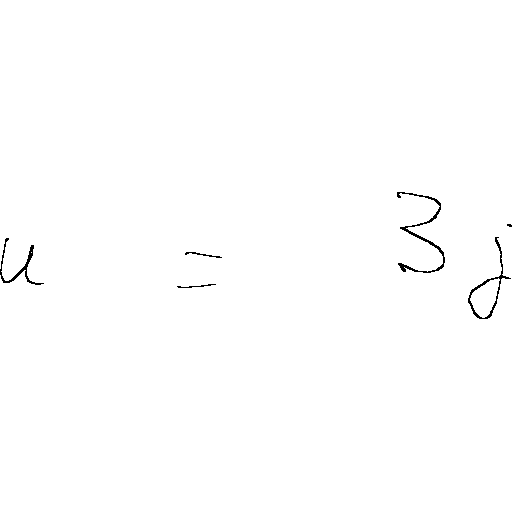 u = 3j